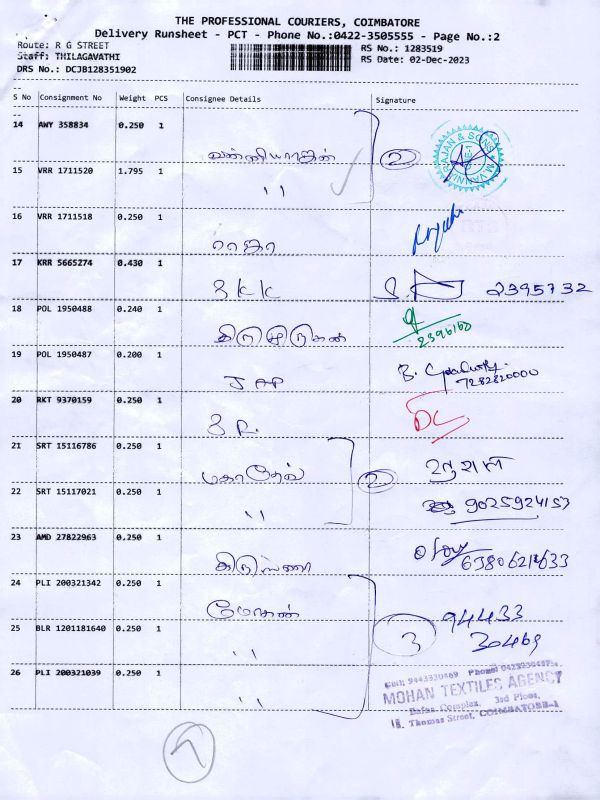 THE PROFESSIONAL COURIERS, COIMBATORE
Delivery Runsheet - PCT - Phone No.:0422-3505555 - Page No.:2
Route: R G STREET
RS No.: 1283519
Staff: THILAGAVATHI
RS Date: 02-Dec-2023
DRS No.: DCJB128351902
S No Consignment No Weight PCS Consignee Details Signature
14 AWY 358834 0.250 1
வன்னியராஜன் 2
15 VRR 1711520 1.795 1
" 
16 VRR 1711518 0.250 1
ராஜா
17 KRR 5665274 0.430 1
S K K 2395732
18 POL 1950488 0.240 1
திருமுருகன் 2396160
19 POL 1950487 0.200 1
JAP 7282820000
20 RKT 9370159 0.250 1
S R.
21 SRT 15116786 0.250 1
மகாதேவ் 2
22 SRT 15117021 0.250 1
" 9025924157
23 AMD 27822963 0.250 1
கிருஸ்ணா
24 PLI 200321342 0.250 1
மோகன் 94433
25 BLR 1201181640 0.250 1
" 3 30469
26 PLI 200321039 0.250 1
"
Cell: 9443330469
MOHAN TEXTILES AGENCY
Complex, 3rd Floor,
Thomas Street, COIMBATORE-1